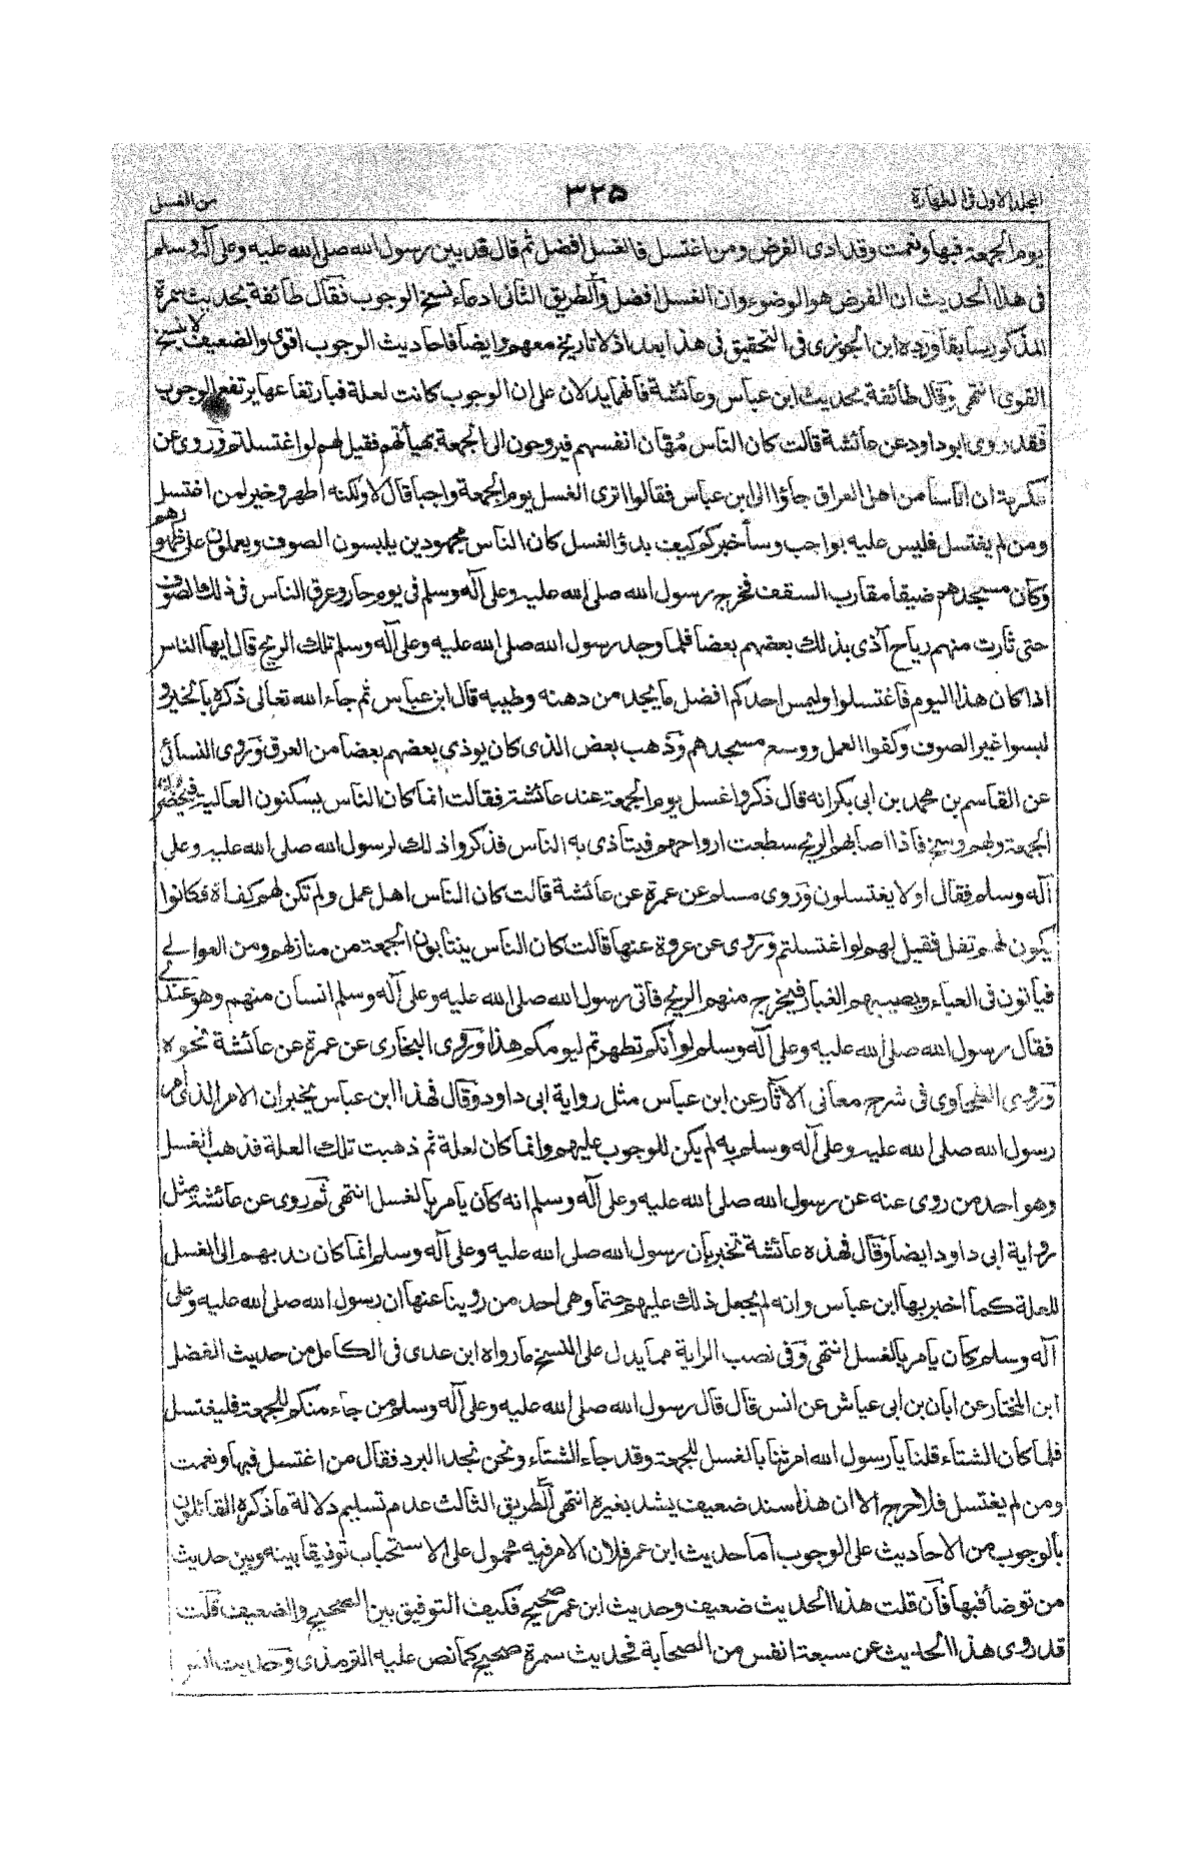 المجلد الاول فى الطهارة
٣٢٥
من الغسل
يوم الجمعة فبها ونعمت وقد ادى الفرض ومن اغتسل فالغسل افضل ثم قال قد بين رسول الله صلى الله عليه وعلى آله وسلم
فى هذا الحديث ان الفرض هو الوضوء وان الغسل افضل والطريق الثانى ادعاء نسخ الوجوب فقال طائفة بحديث سمرة
المذكور سابقا ورده ابن الجوزى فى التحقيق فى هذا بعد اذ لا تاريخ معهم وايضا فاحاديث الوجوب اقوى والضعيف لا ينسخ
القوى انتهى وقال طائفة بحديث ابن عباس وعائشة فانهما يدلان على ان الوجوب كانت لعلة فبارتفاعها يرتفع الوجوب
فقد روى ابو داود عن عائشة قالت كان الناس مُهّان انفسهم فيروحون الى الجمعة بهيأتهم فقيل لهم لو اغتسلتم وروى عن
عكرمة ان اناسا من اهل العراق جاؤا الى ابن عباس فقالوا اترى الغسل يوم الجمعة واجبا قال لا ولكنه اطهر وخير لمن اغتسل
ومن لم يغتسل فليس عليه بواجب وسأخبركم كيف بدؤ الغسل كان الناس مجهودين يلبسون الصوف ويعملون على ظهورهم
وكان مسجدهم ضيقا مقارب السقف فخرج رسول الله صلى الله عليه وعلى آله وسلم فى يوم حار وعرق الناس فى ذلك الصوف
حتى ثارت منهم رياح آذى بذلك بعضهم بعضا فلما وجد رسول الله صلى الله عليه وعلى آله وسلم تلك الريح قال ايها الناس
اذا كان هذا اليوم فاغتسلوا وليمس احدكم افضل ما يجد من دهنه وطيبه قال ابن عباس ثم جاء الله تعالى ذكره بالخير و
لبسوا غير الصوف وكفوا العمل ووسع مسجدهم وذهب بعض الذى كان يوذي بعضهم بعضا من العرق وروى النسائى
عن القاسم بن محمد بن ابى بكر انه قال ذكروا غسل يوم الجمعة عند عائشة فقالت انما كان الناس يسكنون العالية فيحضرون
الجمعة وبهم وسخ فاذا اصابهم الريح سطعت ارواحهم فيتأذى به الناس فذكروا ذلك لرسول الله صلى الله عليه وعلى
آله وسلم فقال اولا يغتسلون وروى مسلم عن عمرة عن عائشة قالت كان الناس اهل عمل ولم تكن لهم كفاة فكانوا
يكون لهم تفل فقيل لهم لو اغتسلتم وروى عن عروة عنها قالت كان الناس ينتابون الجمعة من منازلهم ومن العوالے
فيأتون فى العباء ويصيبهم الغبار فيخرج منهم الريح فاتى رسول الله صلى الله عليه وعلى آله وسلم انسان منهم وهو عندے
فقال رسول الله صلى الله عليه وعلى آله وسلم لو انكم تطهرتم ليومكم هذا وروى البخارى عن عمرة عن عائشة نحوه
وروى الطحاوى فى شرح معانى الآثار عن ابن عباس مثل رواية ابى داود وقال فهذا ابن عباس يخبر ان الامر الذى امر
رسول الله صلى الله عليه وعلى آله وسلم به لم يكن للوجوب عليهم وانما كان لعلة ثم ذهبت تلك العلة فذهب الغسل
وهو احد من روى عنه عن رسول الله صلى الله عليه وعلى آله وسلم انه كان يامر بالغسل انتهى ثم روى عن عائشة مثل
رواية ابى داود ايضا وقال فهذه عائشة تخبر بان رسول الله صلى الله عليه وعلى آله وسلم انما كان ندبهم الى الغسل
للعلة كما اخبر بها ابن عباس وانه لم يجعل ذلك عليهم حتما وهى احد من روينا عنها ان رسول الله صلى الله عليه وعلى
آله وسلم كان يامر بالغسل انتهى وفى نصب الراية مما يدل على النسخ ما رواه ابن عدى فى الكامل من حديث الفضل
ابن المختار عن ابان بن ابى عياش عن انس قال قال رسول الله صلى الله عليه وعلى آله وسلم من جاء منكم للجمعة فليغتسل
فلما كان الشتاء قلنا يا رسول الله امرتنا بالغسل للجمعة وقد جاء الشتاء ونحن نجد البرد فقال من اغتسل فبها ونعمت
ومن لم يغتسل فلا حرج الا ان هذا سند ضعيف يشد بغيره انتهى الطريق الثالث عدم تسليم دلالة ما ذكره القائلون
بالوجوب من الاحاديث على الوجوب اما حديث ابن عمر فلان الامر فيه محمول على الاستحباب توفيقا بينه وبين حديث
من توضأ فبها فان قلت هذا الحديث ضعيف وحديث ابن عمر صحيح فكيف التوفيق بين الصحيح والضعيف قلت
قد روى هذا الحديث عن سبعة انفس من الصحابة فحديث سمرة صحيح كما نص عليه الترمذى وحديث انس